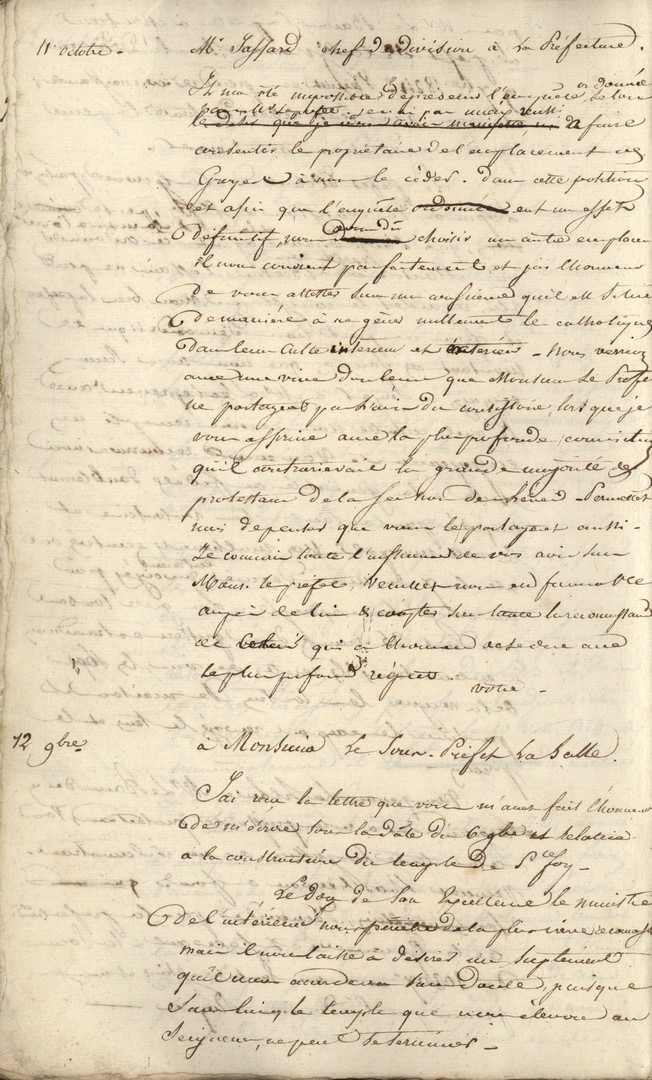 11 octobre - Mr. Jassard chef de division à la Préfecture.
Il m'a été impossible de présenter l'enquête ordonnée
par Mr. le préfet, je n'ai pas
le que je vous avois à faire
consentir le propriétaire de l'emplacement de
à nous le céder. Dans cette position
et afin que l'enquête ordonnée eut un effet
définitif, nous avons dû choisir un autre emplacem
il nous convient parfaitement et j'ai l'honneur
de vous attester sur ma conscience qu'il est situé
de manière à ne gêner nullement le catholique
dans leur culte interieur et exterieur - Nous verrions
avec une vive douleur que Monsieur le Préfet
ne partageat pas l'avis du consistoire, lorsque je
vous assure avec la plus profonde conviction
qu'il contrarierait la grande majorité des
protestans de la - Permettez
moi de penser que vous le partagerez aussi -
Je connais toute l'influence de vos avis sur
Mons. le prefet, veuillez nous en
de lui & comptez sur toute la reconnaissance
de celui qui a l'honneur d'etre avec
le plus profond respect.
votre -
12 9bre à Monsieur le Sous-Préfet La Salle.
J'ai reçu la lettre que vous m'avez fait l'honneur
de m'écrire sous la date du 6 9bre et relative
a la construction du temple de Ste foy -
Le don de Son Excellence le ministre
de l'intérieur nous pénètre de la plus vive reconnaiss
mais il nous laisse à désirer un suplement
qu'il nous accordera sans doute, puisque
sans lui, le temple que nous élevons au
Seigneur, ne peut se terminer -